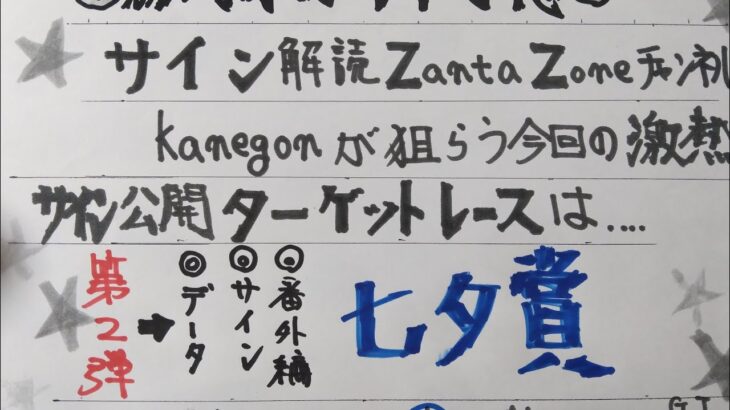 サイン解読ZantaZoneチャンネル
kanegonが狙らう今回の激熱
サイン公開ターゲットレースは....
第2弾
➡
◎データ
◎サイン
◎番外稿
七夕賞
GI